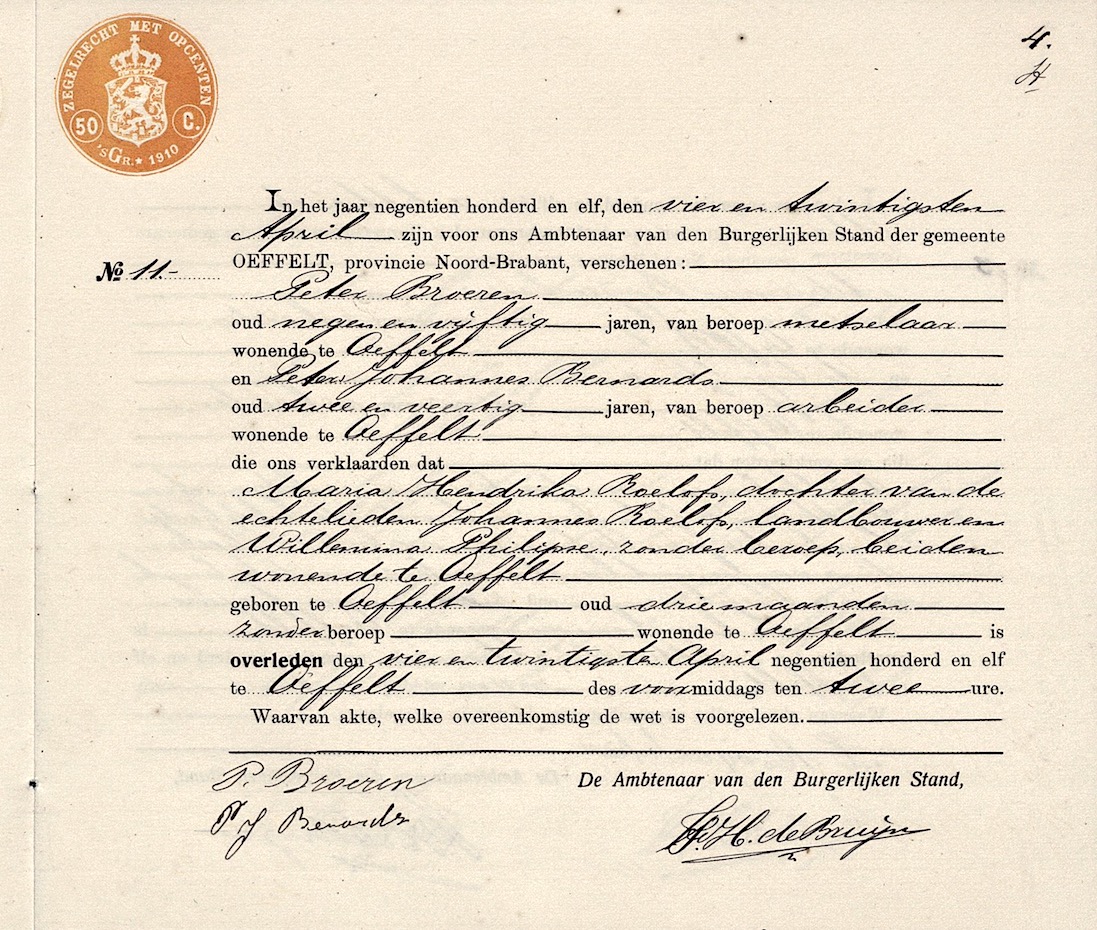 ZEGELRECHT MET OPCENTEN
50 C.
'sGR.★ 1910
4.
In het jaar negentien honderd en elf, den vier en twintigsten
April zijn voor ons Ambtenaar van den Burgerlijken Stand der gemeente
OEFFELT, provincie Noord-Brabant, verschenen :
№ 11.-
Peter Broeren
oud negen en vijftig jaren, van beroep metselaar
wonende te Oeffelt
en Peter Johannes Bernards
oud twee en veertig jaren, van beroep arbeider
wonende te Oeffelt
die ons verklaarden dat
Maria Hendrika Roelofs, dochter van de
echtelieden Johannes Roelofs, landbouwer en
Willemina Philipse, zonder beroep, beiden
wonende te Oeffelt
geboren te Oeffelt oud drie maanden
zonder beroep wonende te Oeffelt is
overleden den vier en twintigsten April negentien honderd en elf
te Oeffelt des voormiddags ten twee ure.
Waarvan akte, welke overeenkomstig de wet is voorgelezen.
P. Broeren
De Ambtenaar van den Burgerlijken Stand,
P J Bernards
H. de Bruijn